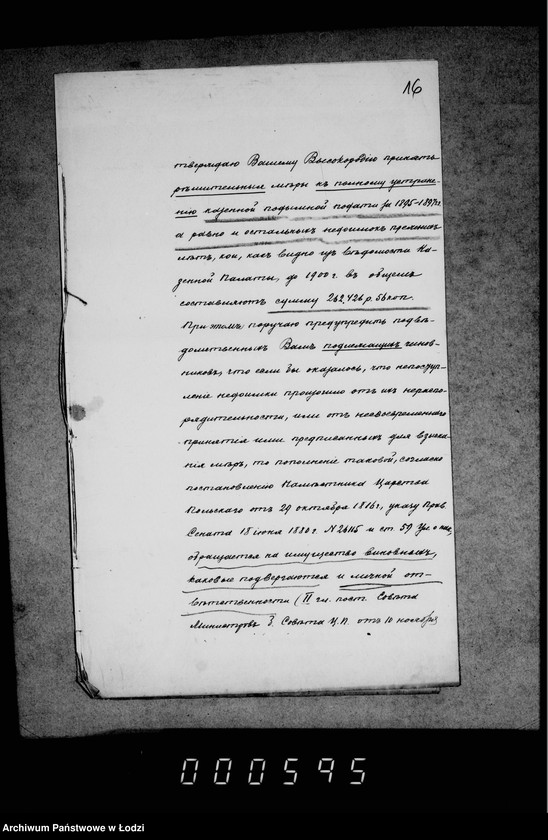 16
тверждаю Вашему Высокородію принять
рѣшительныя мѣры къ полному устране-
нію казенной подымной подати за 1895-1897 г.
а равно и остальныхъ недоимокъ прежнихъ
лѣтъ, кои, какъ видно изъ вѣдомости Ка-
зенной Палаты, до 1900 г. въ общемъ
составляютъ сумму 262.426 р. 56 коп.
При этомъ поручаю предупредить подвѣ-
домственныхъ Вамъ подлежащихъ чинов-
никовъ, что если бы оказалось, что непоступ-
леніе недоимки произошло отъ ихъ нераспо-
рядительности, или отъ несвоевременнаго
принятія ими предписанныхъ для взыска-
нія мѣръ, то пополненіе таковой, согласно
постановленію Намѣстника Царства
Польскаго отъ 29 октября 1816 г., указу Прав.
Сената 18 іюня 1830 г. N 26115 и ст. 59 Ул. о нак.,
обращается на имущество виновныхъ,
каковые подвергаются и личной от-
вѣтственности (II гл. пост. Совѣта
Министровъ б. Совѣта Ц. П. отъ 10 ноября
000595
Archiwum Państwowe w Łodzi